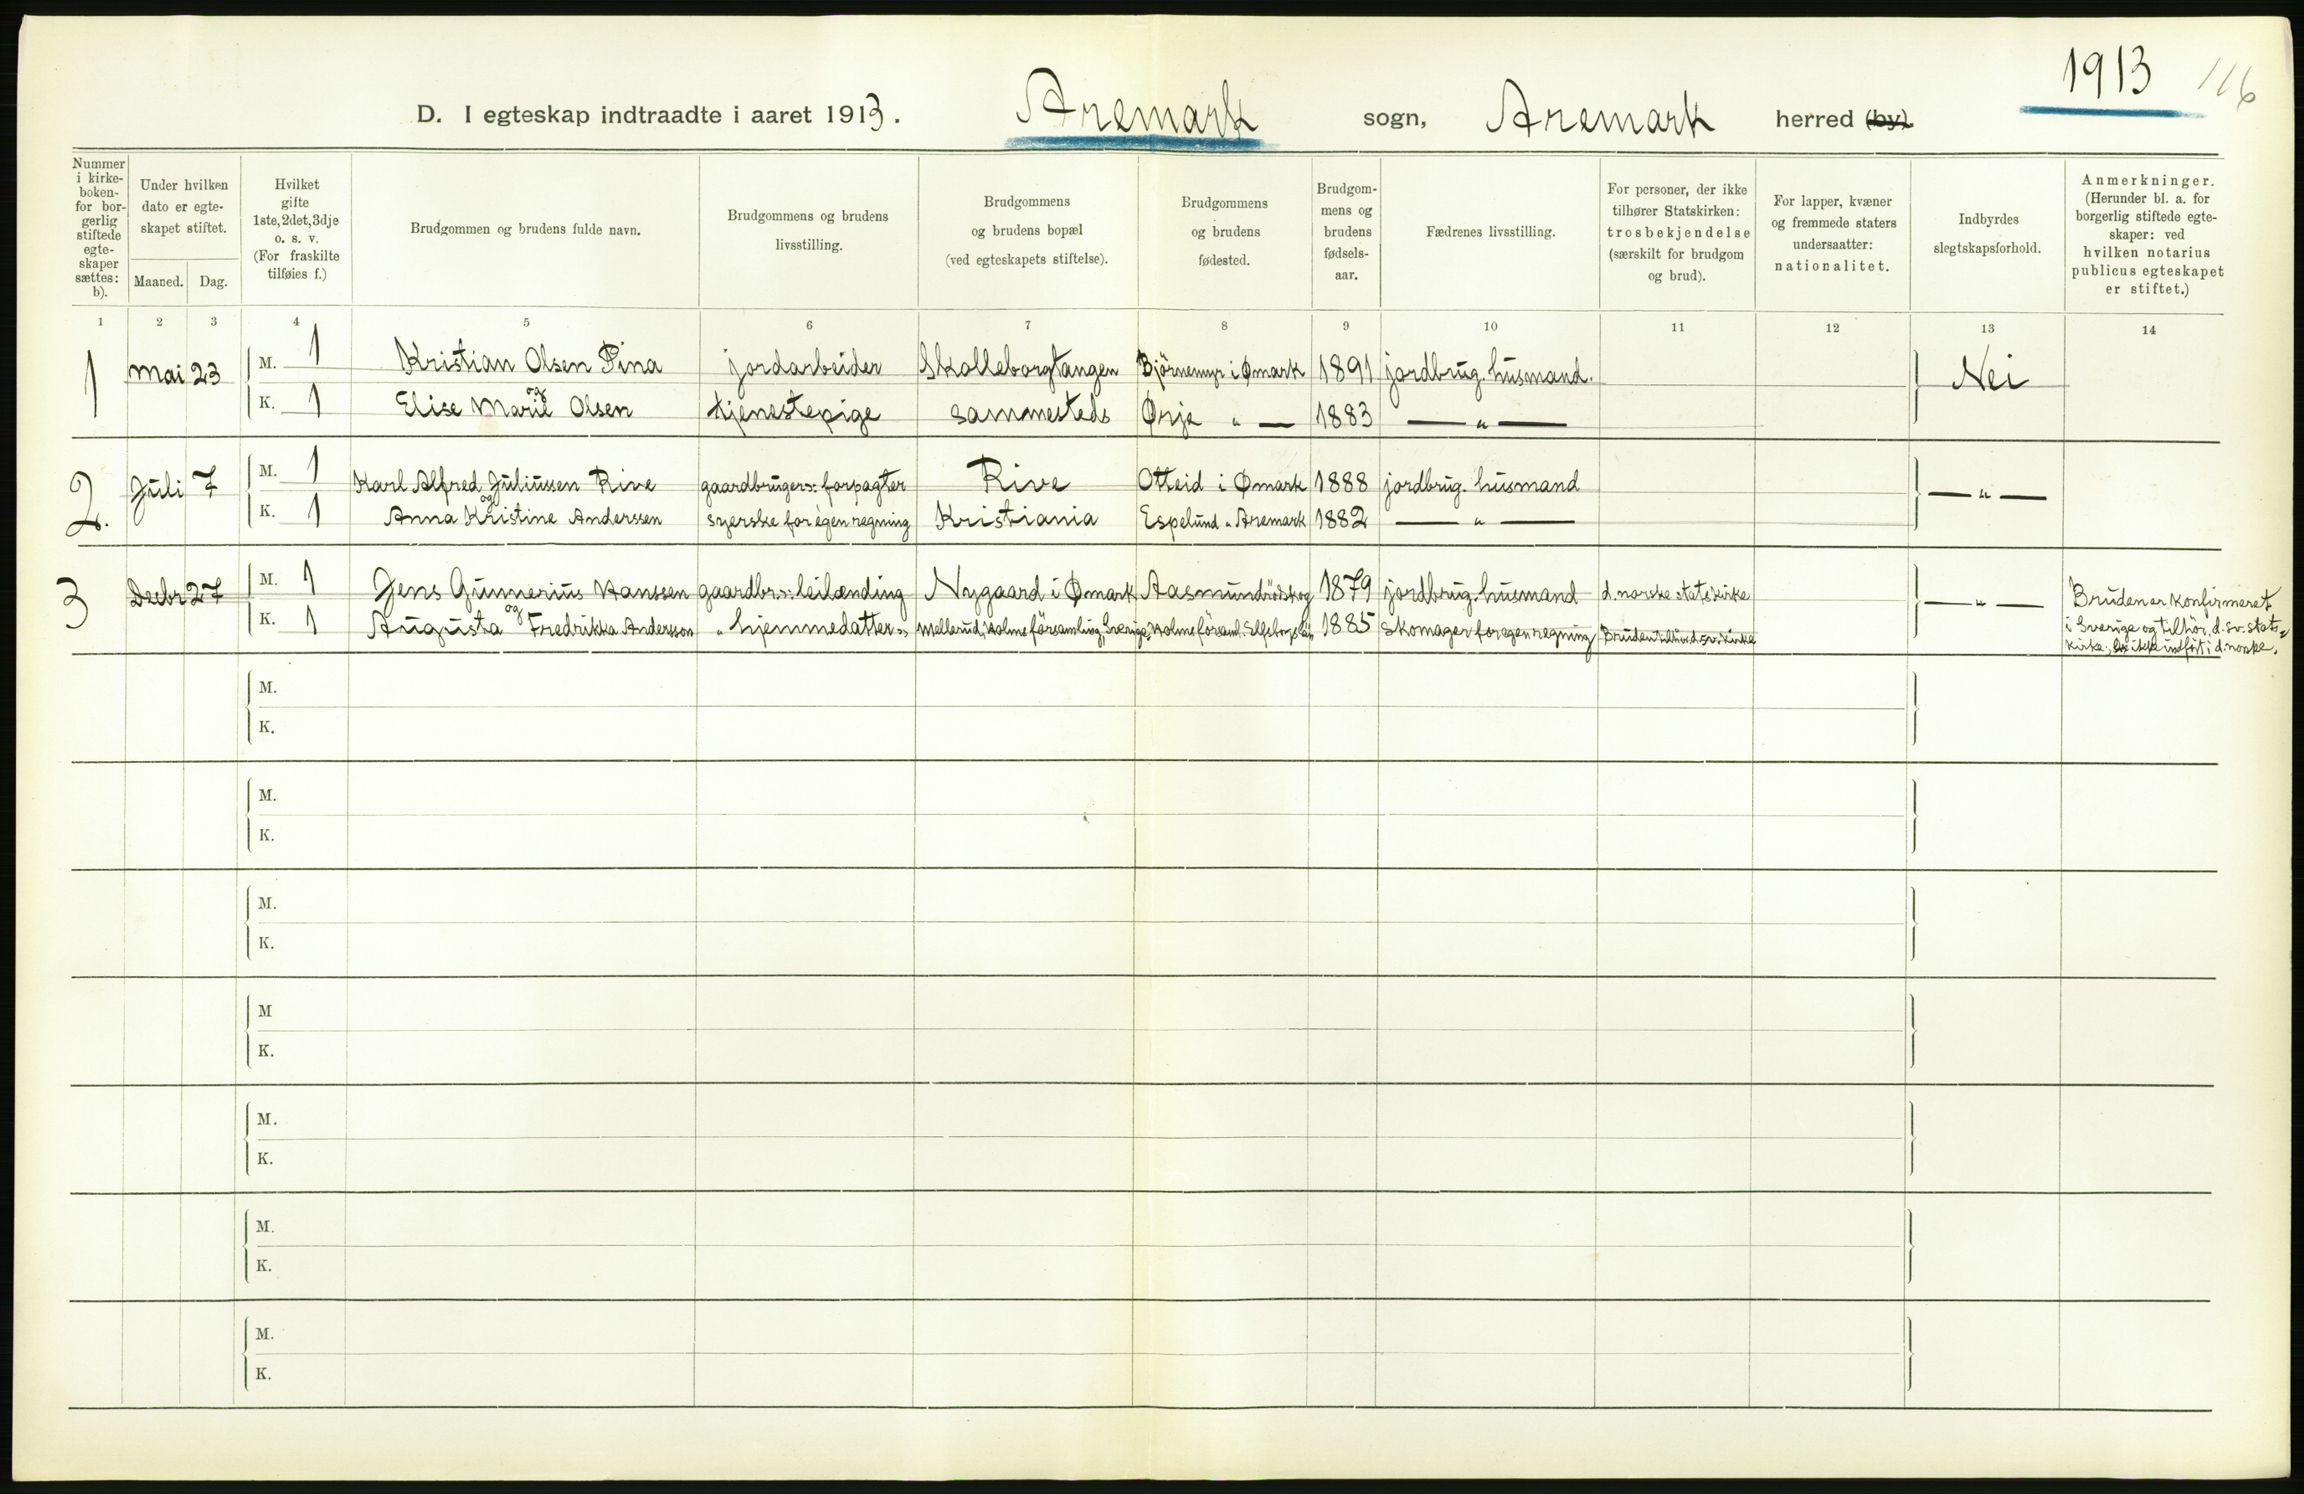 1913 116
D. I egteskap indtraadte i aaret 1913. Aremark sogn, Aremark herred (by).
Nummer i kirke-boken- for bor-gerlig stiftede egte-skaper sættes: b).
Under hvilken dato er egte-skapet stiftet.
Maaned. Dag.
Hvilket gifte 1ste, 2det, 3dje o. s. v. (For fraskilte tilføies f.)
Brudgommen og brudens fulde navn.
Brudgommens og brudens livsstilling.
Brudgommens og brudens bopæl (ved egteskapets stiftelse).
Brudgommens og brudens fødested.
Brudgom-mens og brudens fødsels-aar.
Fædrenes livsstilling.
For personer, der ikke tilhører Statskirken: trosbekjendelse (særskilt for brudgom og brud).
For lapper, kvæner og fremmede staters undersaatter: nationalitet.
Indbyrdes slegtskapsforhold.
Anmerkninger. (Herunder bl. a. for borgerlig stiftede egte-skaper: ved hvilken notarius publicus egteskapet er stiftet.)
1 2 3 4 5 6 7 8 9 10 11 12 13 14
1 Mai 23 M. 1 Kristian Olsen Pina jordarbeider Skolleborgtangen Björnemyr i Ømark 1891 jordbrug. husmand. Nei
og
K. 1 Elise Marie Olsen tjenestepige sammesteds Ørje " — 1883 — " —
2. Juli 7 M. 1 Karl Alfred Juliussen Rive gaardbruger ɔ: forpagter Rive Otteid i Ømark 1888 jordbrug. husmand — " —
og
K. 1 Anna Kristine Anderssen syerske for egen regning Kristiania Espelund " Aremark 1882 — " —
3 Decbr 27 M. 1 Jens Gunnerius Hanssen gaardbr. ɔ: leilænding Nygaard i Ømark Aasmundrödskog 1879 jordbrug. husmand d. norske statskirke — " —
og
K. 1 Augusta Fredrikka Andersson " hjemmedatter " Mellerud, Holms församling, Sverige Holms församl. Elfsborgs län 1885 Skomager for egen regning Bruden tilhör d. sv. kirke
Bruden er konfirmeret
i Sverige og tilhör d. sv. stats-
kirke, er ikke indfört i d. norske.
M.
K.
M.
K.
M.
K.
M
K.
M.
K.
M.
K.
M.
K.